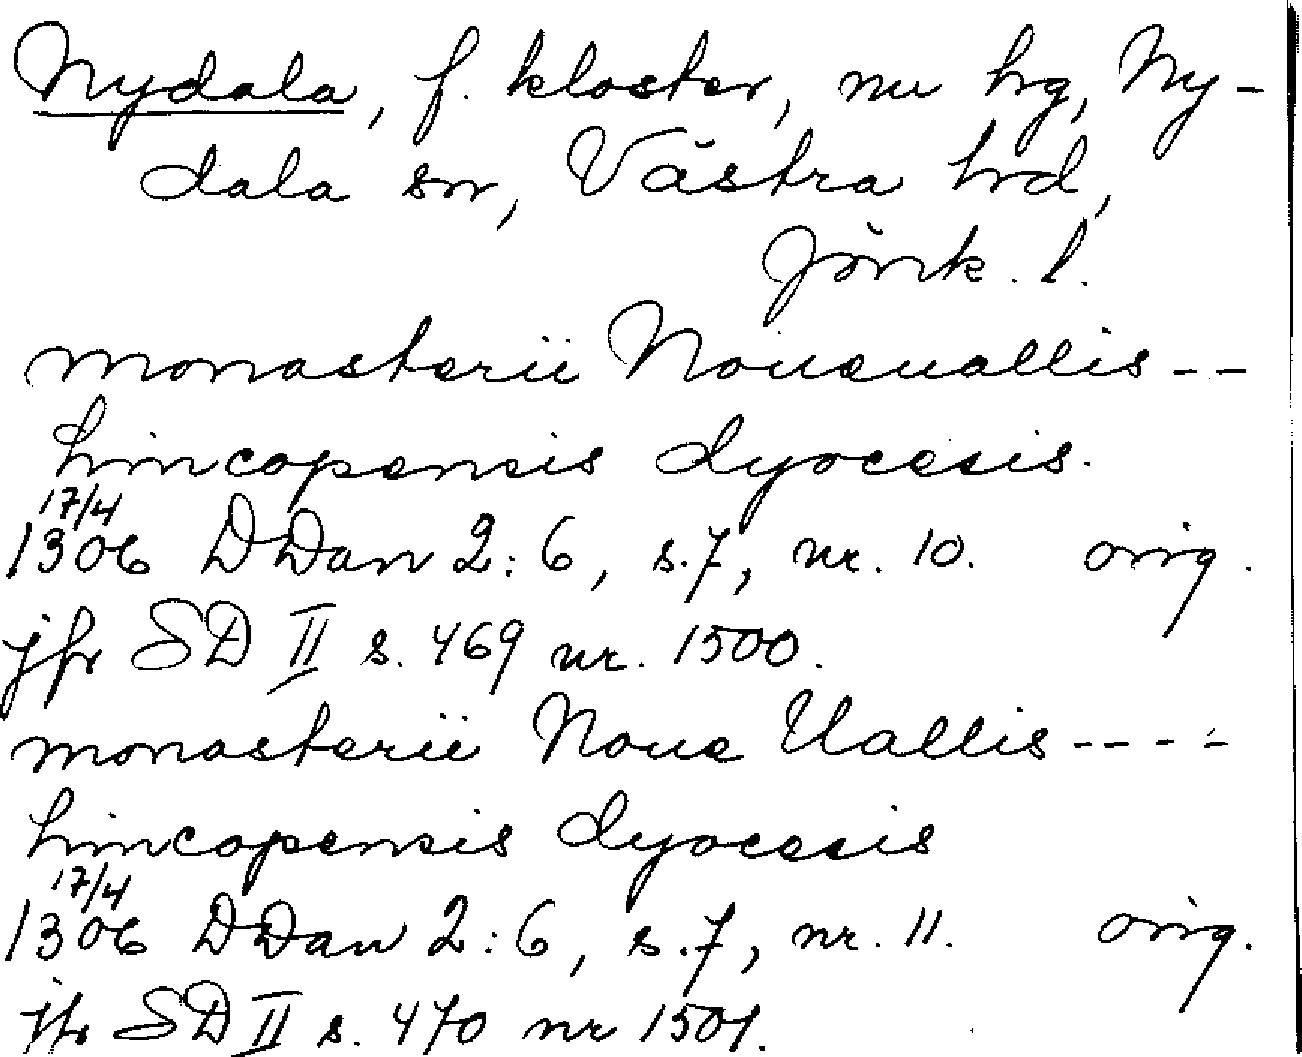 Nydala, f. kloster, nu hrg, Ny-
dala sn, Västra hrd,
Jönk. l.
monasterii Noueuallis --
hincopensis dyocesis.
17/4
1306 DDan 2:6, s.7, nr. 10. orig.
jfr SD II s. 469 nr. 1500.
monasterii Noue Uallis ----
hincopensis dyocesis
17/4
1306 DDan 2:6, s.7, nr. 11. orig.
jfr SD II s. 470 nr 1501.